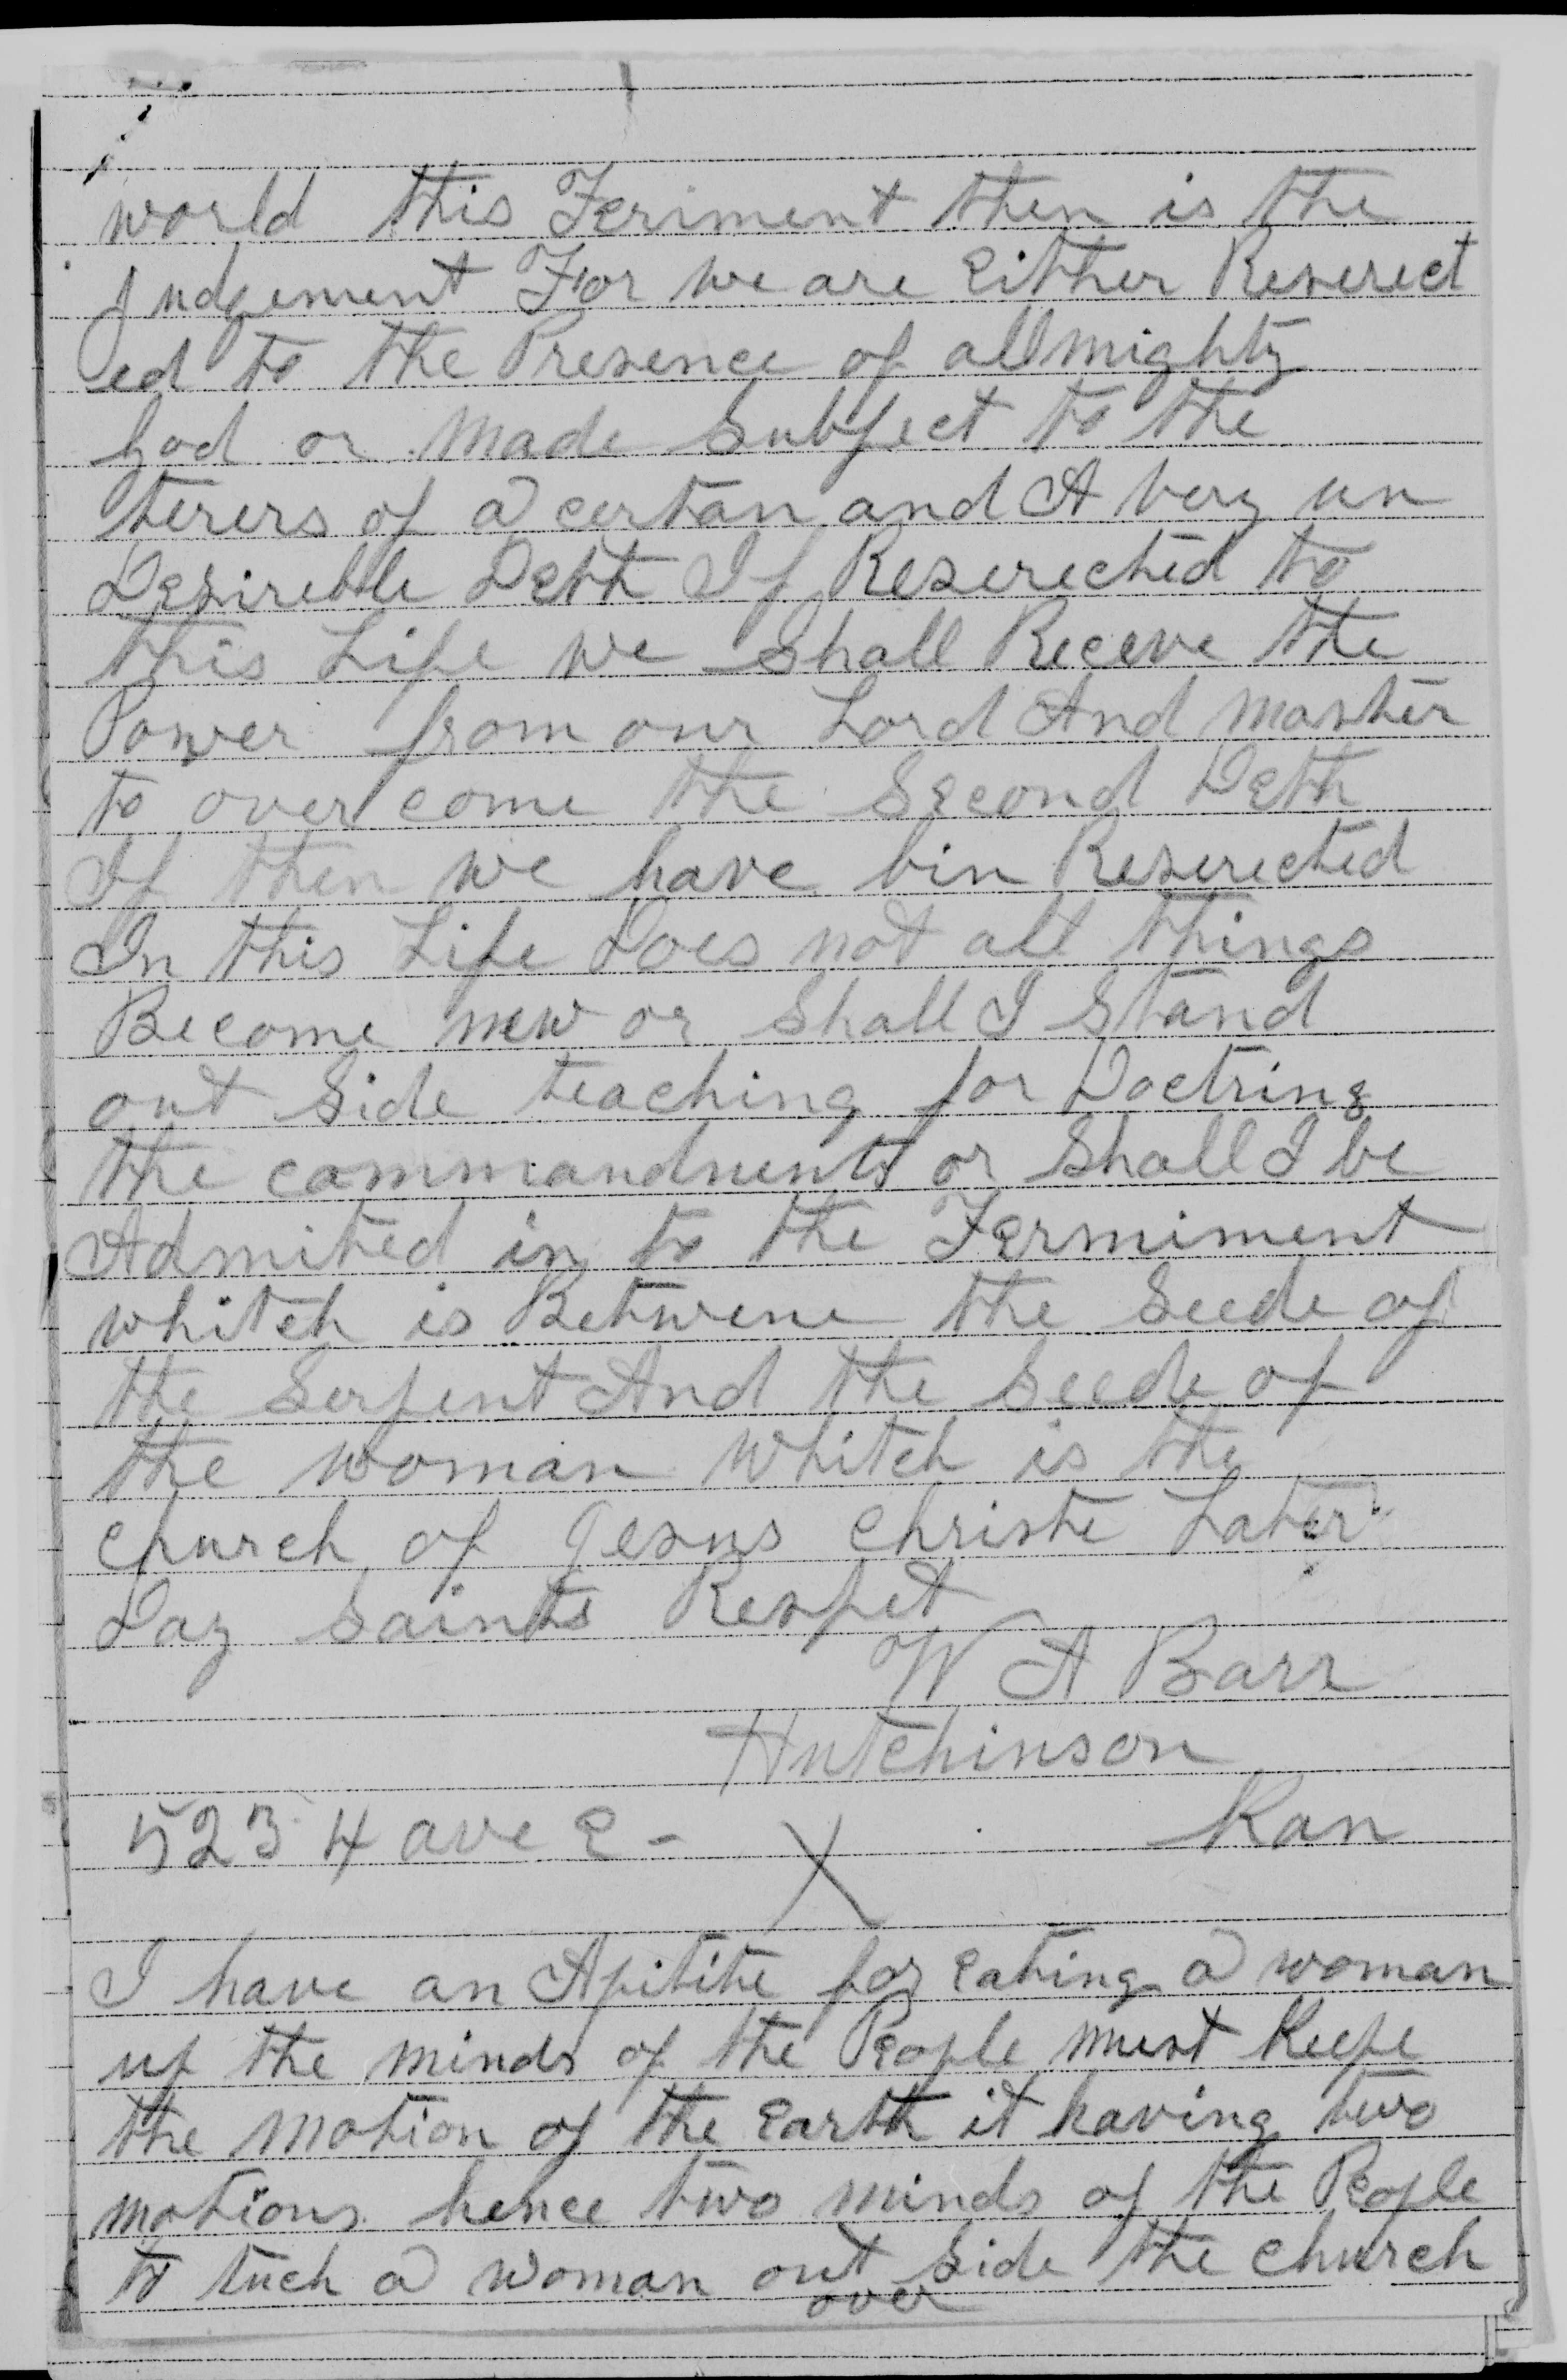 world this Feriment then is the
Judgement For we are Either Reserect
ed to the Presence of allmighty
God or Made Subject to the
terers of a certan and A very un
Desireble Deth If Reserected to
this Life we Shall Receve the
Power from our Lord And Master
to over come the Second Deth
If then we have bin Reserected
In this Life Does not all things
Become new or Shall I Stand
out Side teaching for Doctring
the commandments or Shall I be
Admited in to the Fermiment
whitch is Betwene the Seede of
the Serpent And the Seede of
the woman whitch is the
church of Jesus Christe Later
Day Saints Respet
W A Barr
Hutchinson
Kan
523 4 ave E -
X
I have an Apitite for Eating a woman
up the minds of the People must Keepe
the Motion of the Earth it having two
motions hence two minds of the People
to tuch a woman out Side the church
over